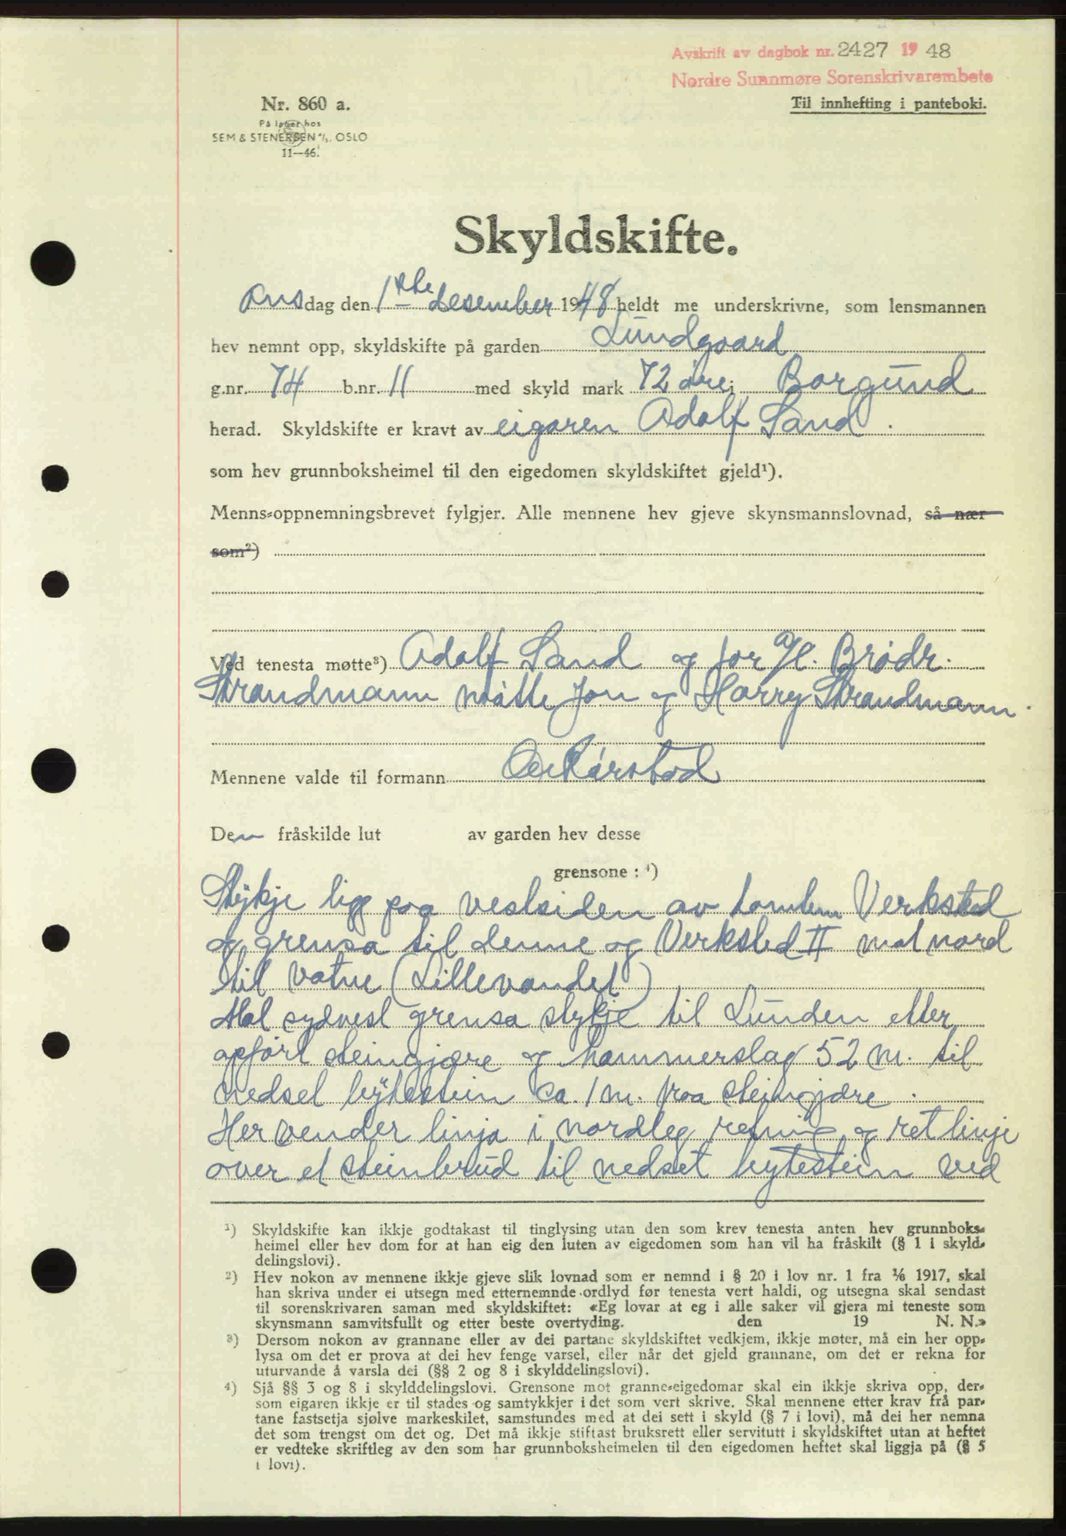 Avskrift av dagbok nr. 2427 19 48
Nordre Sunnmøre Sorenskrivarembete
Til innhefting i panteboki.
Nr. 860 a.
På lager hos
SEM & STENERSEN A/S, OSLO
11—46.
Skyldskifte.
Onsdag den 1ste desember 1948 heldt me underskrivne, som lensmannen
hev nemnt opp, skyldskifte på garden Lundgaard
g.nr. 74 b.nr. 11 med skyld mark 72 øre i Borgund
herad. Skyldskifte er kravt av eigaren Adolf Sand.
som hev grunnboksheimel til den eigedomen skyldskiftet gjeld¹).
Menns-oppnemningsbrevet fylgjer. Alle mennene hev gjeve skynsmannslovnad, så nær
som²)
Ved tenesta møtte³) Adolf Sand og for A/S. Brødr.
Strandmann møtte Jon og Harry Strandmann.
Mennene valde til formann
Den fråskilde lut av garden hev desse
grensone : ⁴)
Stykje ligg paa vestsiden av Verksted
og grensa til denne og Verksted II mot nord
til vatne (Lillevandet)
Mot sydvest grensa stykje til Lunden etter
opført steingjære og hammerslag 52 m. til
nedset bytestein ca. 1 m. fraa steingjære.
Her vender linja i nordleg retning og ret linje
over et steinbrud til nedset bytestein ved
¹) Skyldskifte kan ikkje godtakast til tinglysing utan den som krev tenesta anten hev grunnboks-
heimel eller hev dom for at han eig den luten av eigedomen som han vil ha fråskilt (§ 1 i skyld-
delingslovi).
²) Hev nokon av mennene ikkje gjeve slik lovnad som er nemnd i § 20 i lov nr. 1 fra ⅙ 1917, skal
han skriva under ei utsegn med etternemnde ordlyd før tenesta vert haldi, og utsegna skal sendast
til sorenskrivaren saman med skyldskiftet: «Eg lovar at eg i alle saker vil gjera mi teneste som
skynsmann samvitsfullt og etter beste overtyding. den 19 N. N.»
³) Dersom nokon av grannane eller av dei partane skyldskiftet vedkjem, ikkje møter, må ein her opp-
lysa om det er prova at dei hev fenge varsel, eller når det gjeld grannane, om det er rekna for
uturvande å varsla dei (§§ 2 og 8 i skylddelingslovi).
⁴) Sjå §§ 3 og 8 i skylddelingslovi. Grensone mot granne-eigedomar skal ein ikkje skriva opp, der-
som eigaren ikkje er til stades og samtykkjer i det som vert skrive. Skal mennene etter krav frå par-
tane fastsetja sjølve markeskilet, samstundes med at dei sett i skyld (§ 7 i lovi), må dei her nemna
det som trengst om det og. Det må ikkje stiftast bruksrett eller servitutt i skyldskiftet utan at heftet
er vedteke skriftleg av den som har grunnboksheimelen til den eigedomen heftet skal liggja på (§ 5
i lovi).